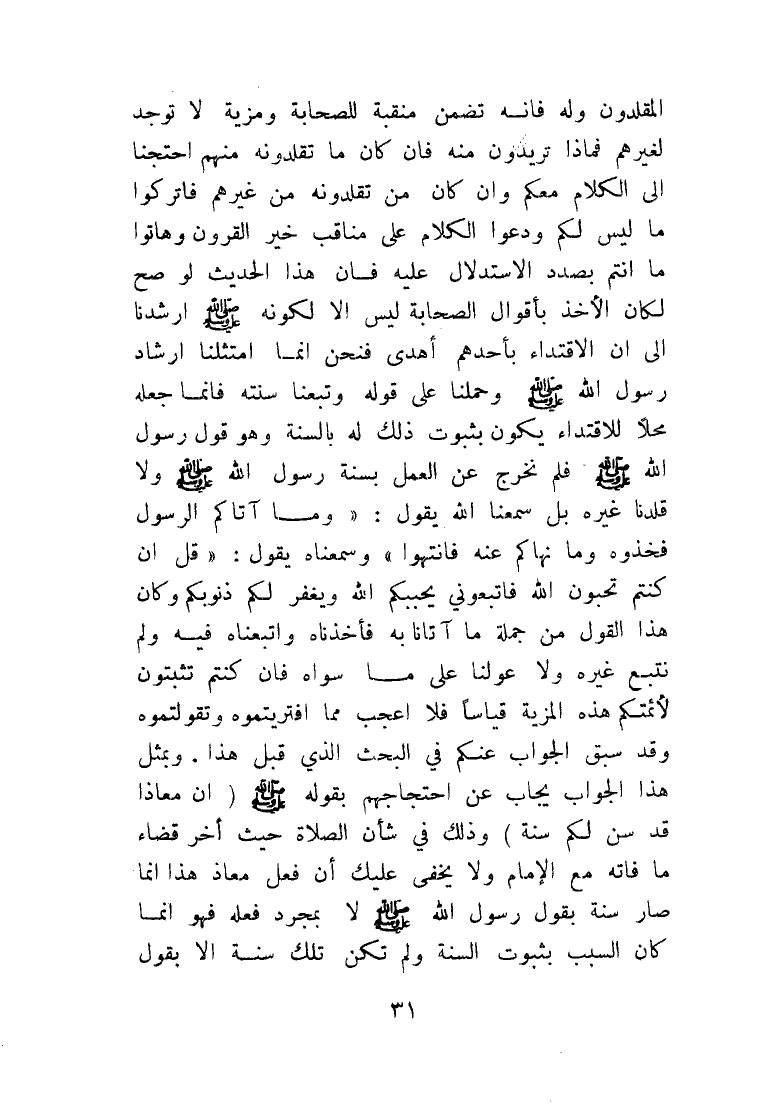 المقلدون وله فانه تضمن منقبة للصحابة ومزية لا توجد
لغيرهم فماذا تريدون منه فان كان ما تقلدونه منهم احتجنا
الى الكلام معكم وان كان من تقلدونه من غيرهم فاتركوا
ما ليس لكم ودعوا الكلام على مناقب خير القرون وهاتوا
ما انتم بصدد الاستدلال عليه فان هذا الحديث لو صح
لكان الأخذ بأقوال الصحابة ليس الا لكونه ﷺ ارشدنا
الى ان الاقتداء بأحدهم أهدى فنحن انما امتثلنا ارشاد
رسول الله ﷺ وحملنا على قوله وتبعنا سنته فانما جعله
محلاً للاقتداء يكون بثبوت ذلك له بالسنة وهو قول رسول
الله ﷺ فلم نخرج عن العمل بسنة رسول الله ﷺ ولا
قلدنا غيره بل سمعنا الله يقول : « وما آتاكم الرسول
فخذوه وما نهاكم عنه فانتهوا » وسمعناه يقول : « قل ان
كنتم تحبون الله فاتبعوني يحببكم الله ويغفر لكم ذنوبكم وكان
هذا القول من جملة ما آتانا به فأخذناه واتبعناه فيه ولم
نتبع غيره ولا عولنا على ما سواه فان كنتم تثبتون
لأئمتكم هذه المزية قياساً فلا اعجب مما افتريتموه وتقولتموه
وقد سبق الجواب عنكم في البحث الذي قبل هذا . وبمثل
هذا الجواب يجاب عن احتجاجهم بقوله ﷺ ( ان معاذا
قد سن لكم سنة ) وذلك في شأن الصلاة حيث أخر قضاء
ما فاته مع الإمام ولا يخفى عليك أن فعل معاذ هذا انما
صار سنة بقول رسول الله ﷺ لا بمجرد فعله فهو انما
كان السبب بثبوت السنة ولم تكن تلك سنة الا بقول
٣١